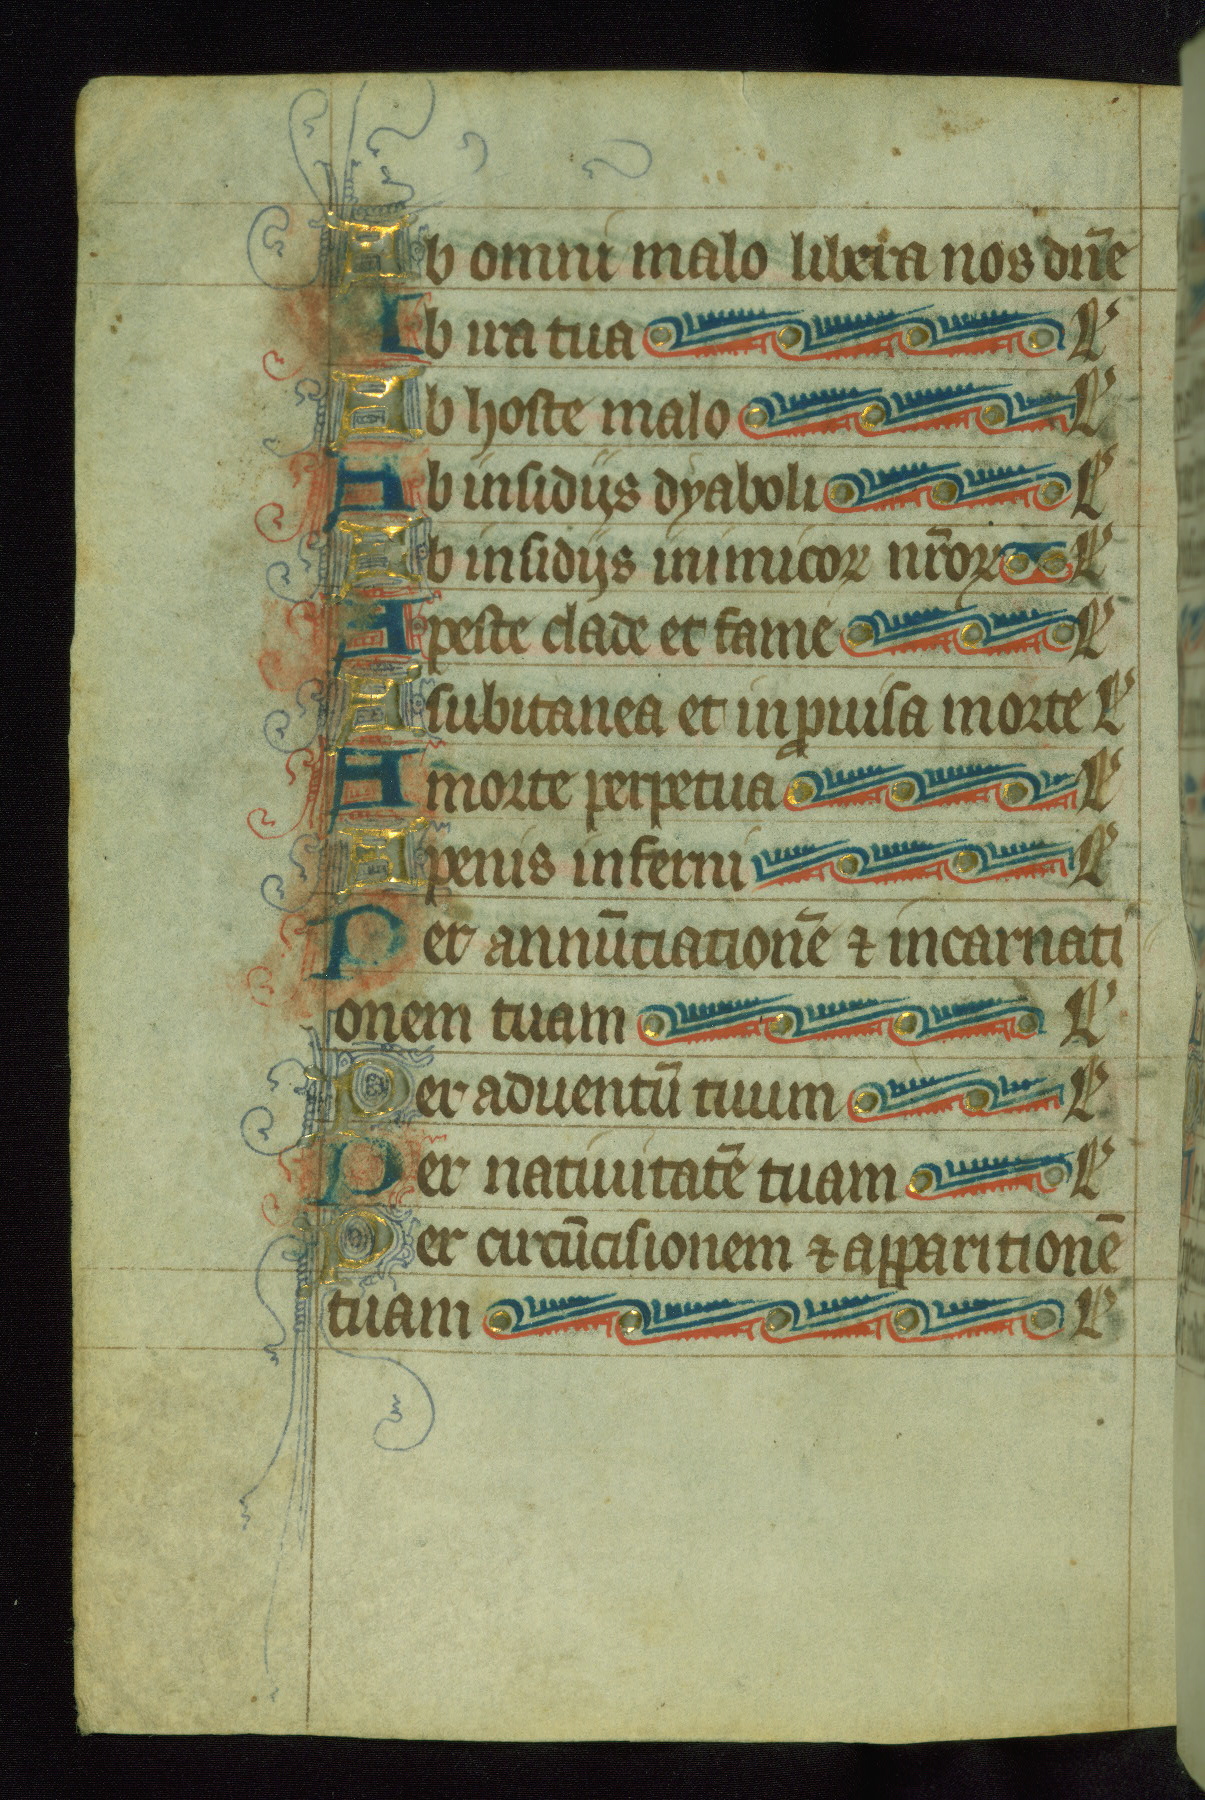 Ab omni malo libera nos dn̄e
Ab ira tua L
Ab hoste malo L
Ab insidijs dyaboli L
Ab insidijs inimicoꝝ nr̄oꝝ L
A peste clade et fame L
A subitanea et inꝓuisa morte L
A morte perpetua L
A penis inferni L
Per annūtiationē ⁊ incarnati
onem tuam L
Per aduentū tuum L
Per natiuitatē tuam L
Per circūcisionem ⁊ apparitionē
tuam L